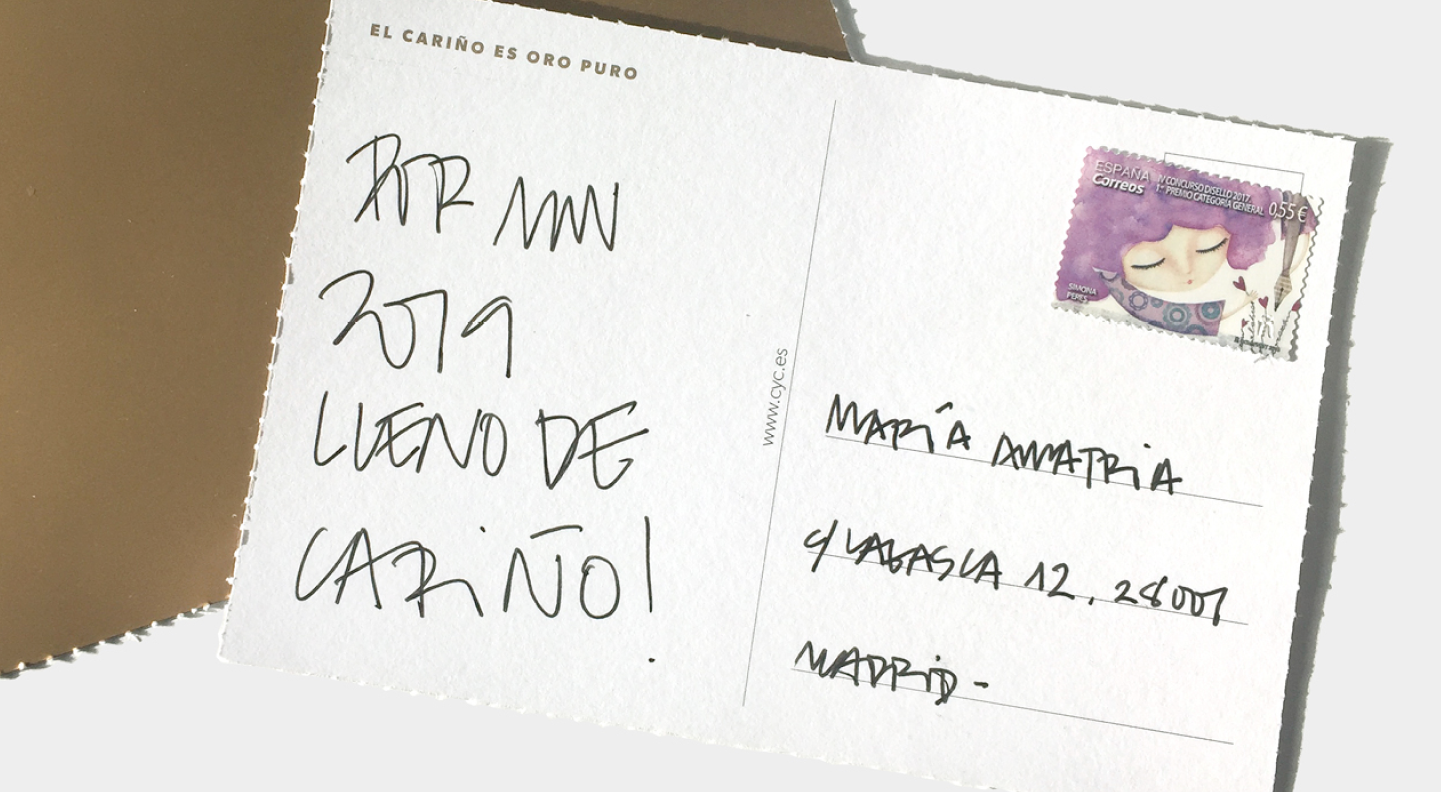 EL CARIÑO ES ORO PURO
POR UN
2019
LLENO DE
CARIÑO!
www.cyc.es
ESPAÑA
Correos
IV CONCURSO DISELLO 2017.
1.er PREMIO CATEGORÍA GENERAL
0,55 €
SIMONA
PERES
MARÍA AMATRIA
C/ LAGASCA 12, 28001
MADRID -